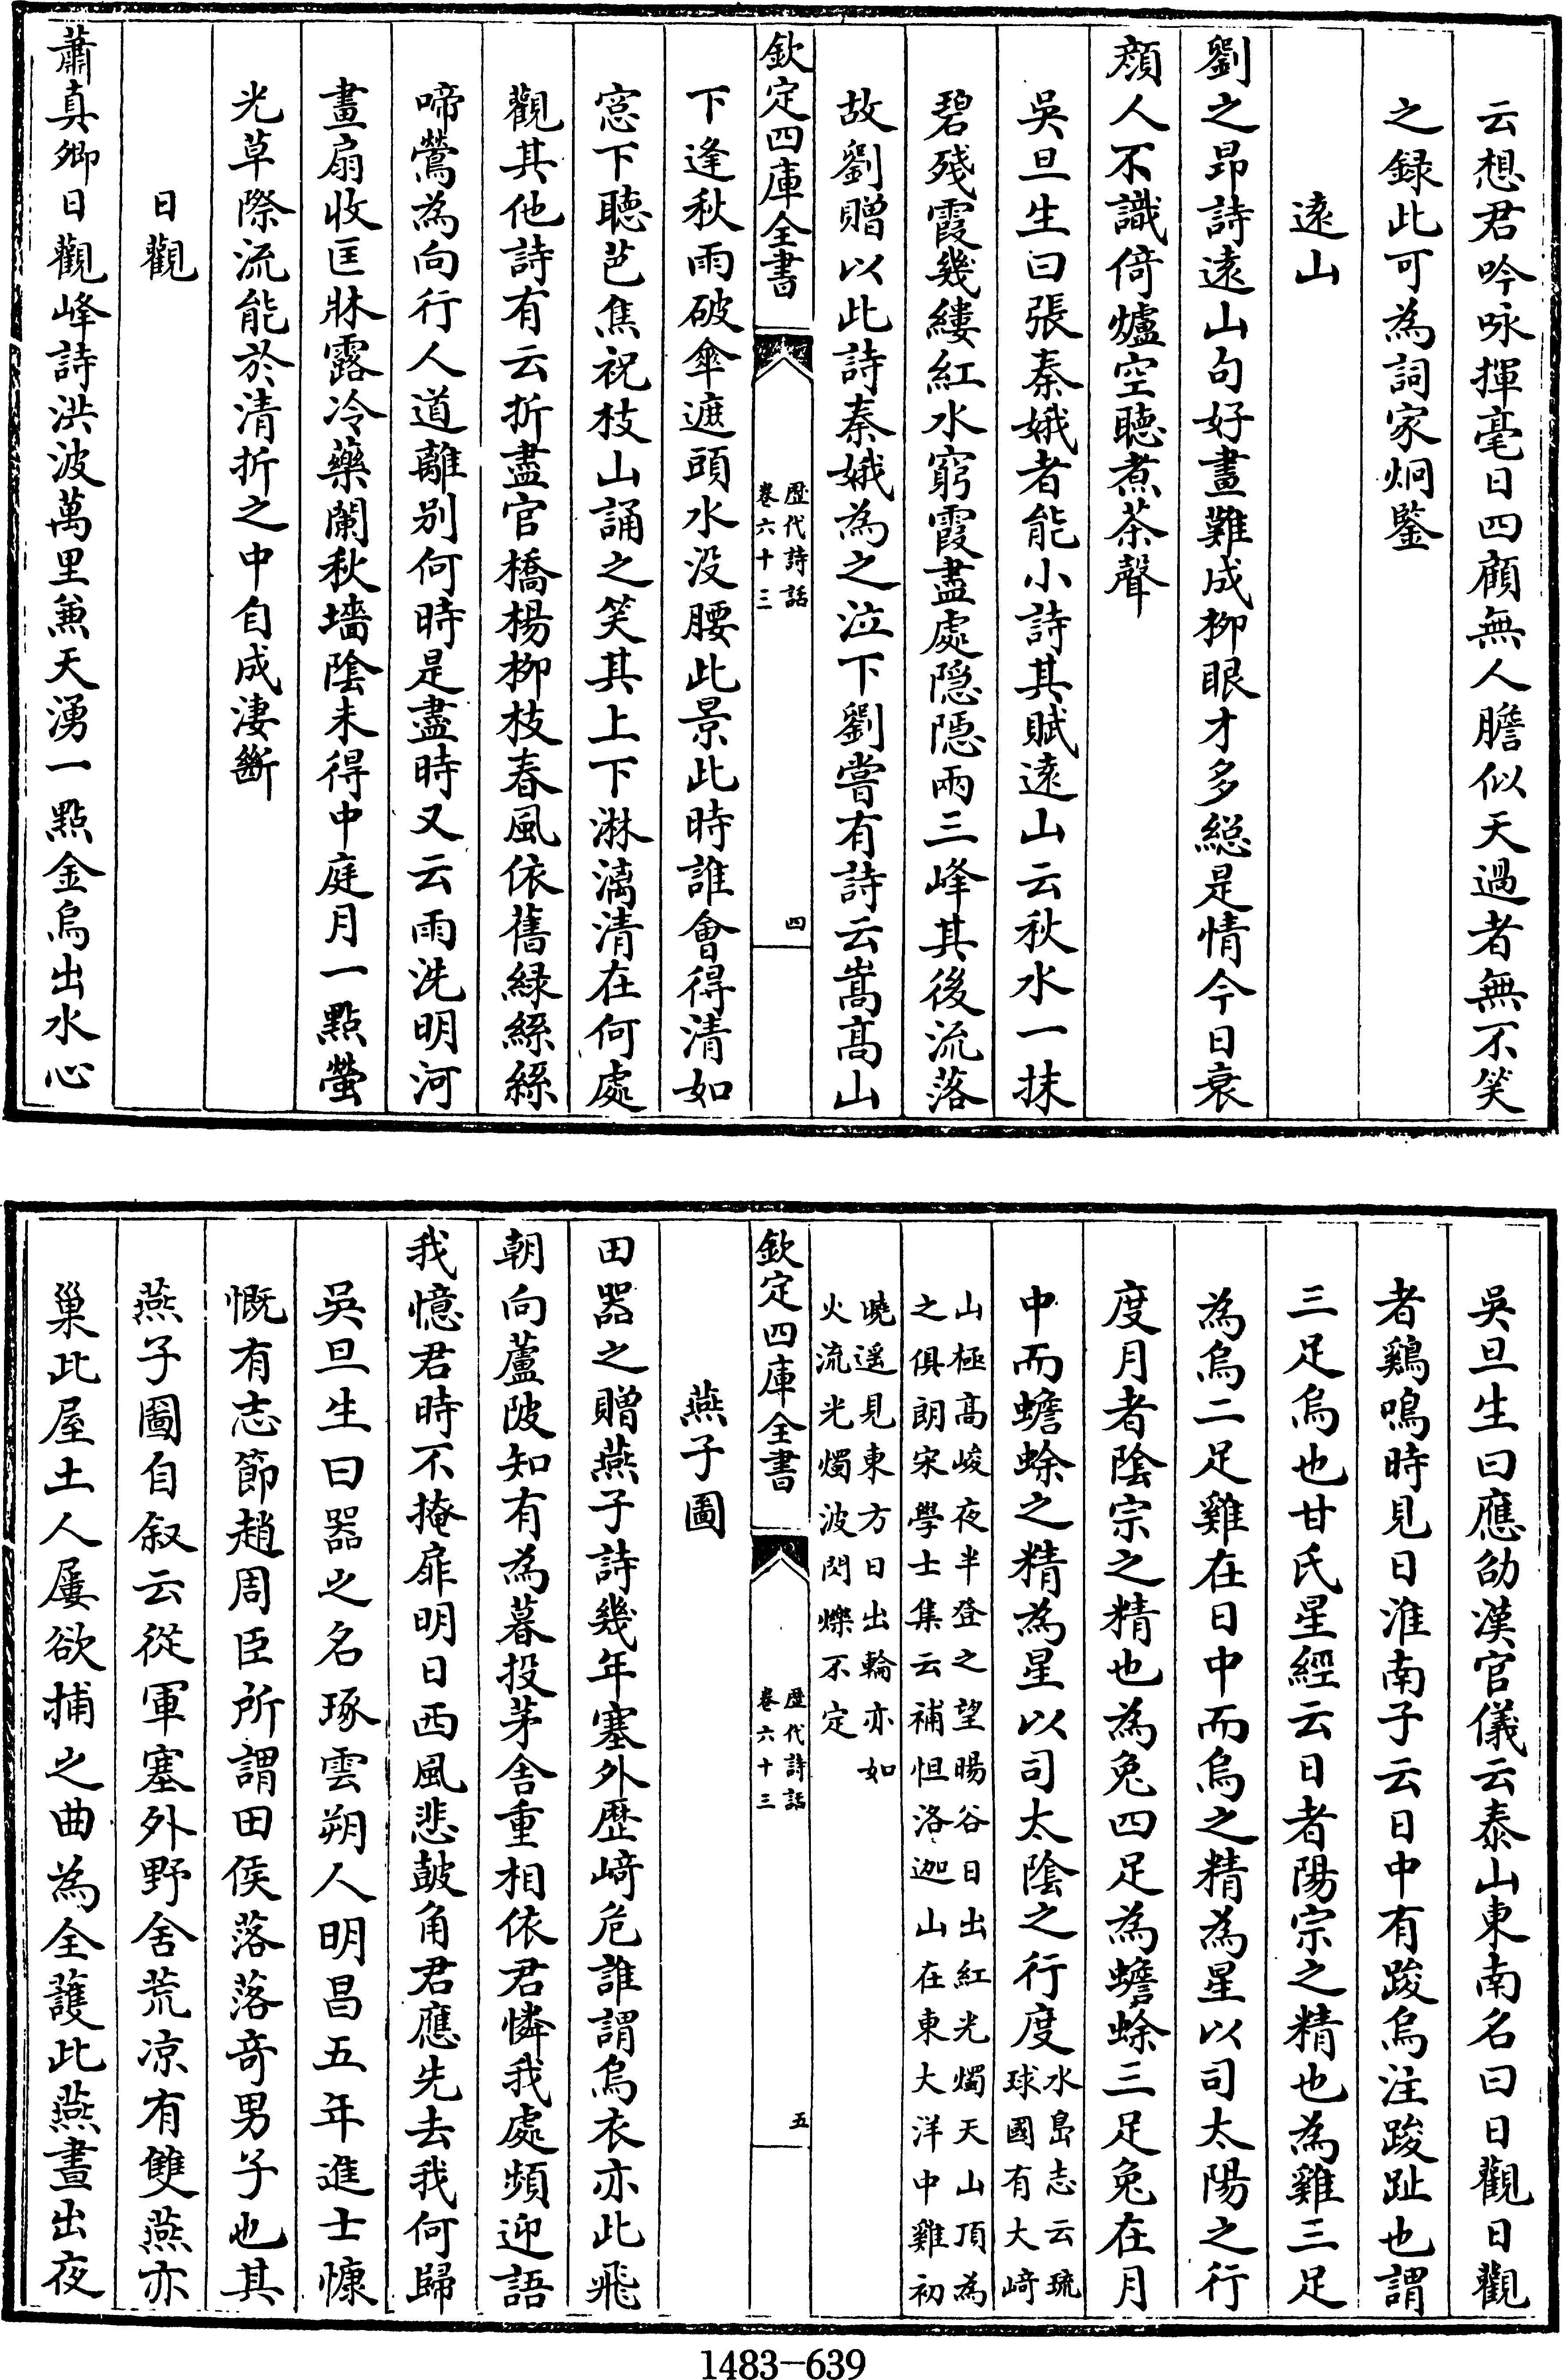 云想君吟咏揮毫日四顧無人膽似天過者無不笑
之録此可為詞家炯鑒
遠山
劉之昻詩遠山句好畫難成柳眼才多總是情今日衰
顔人不識倚爐空聽煮茶聲
吳旦生曰張秦娥者能小詩其賦遠山云秋水一抹
碧殘霞幾縷紅水窮霞盡處隠隠兩三峰其後流落
故劉贈以此詩秦娥為之泣下劉嘗有詩云嵩髙山
欽定四庫全書
歴代詩話
卷六十三
四
下逢秋雨破傘遮頭水没腰此景此時誰會得清如
窓下聽芭焦祝枝山誦之笑其上下淋漓清在何處
觀其他詩有云折盡官橋楊柳枝春風依舊緑絲絲
啼鶯為向行人道離别何時是盡時又云雨洗明河
畫扇收匡牀露冷藥闌秋墻陰未得中庭月一點螢
光草際流能於清折之中自成淒斷
日觀
蕭真卿日觀峰詩洪波萬里兼天湧一點金烏出水心
吳旦生曰應劭漢官儀云泰山東南名曰日觀日觀
者鷄鳴時見日淮南子云日中有踆烏注踆趾也謂
三足烏也甘氏星經云日者陽宗之精也為雞三足
為烏二足雞在日中而烏之精為星以司太陽之行
度月者陰宗之精也為兔四足為蟾蜍三足兔在月
中而蟾蜍之精為星以司太陰之行度水島志云琉
球國有大﨑
山極髙峻夜半登之望暘谷日出紅光燭天山頂為
之俱朗宋學士集云補怛洛迦山在東大洋中雞初
曉遥見東方日出輪亦如
火流光燭波閃爍不定
欽定四庫全書
歴代詩話
卷六十三
五
燕子圖
田器之贈燕子詩幾年塞外歴﨑危誰謂烏衣亦此飛
朝向蘆陂知有為暮投茅舍重相依君憐我處頻迎語
我憶君時不掩扉明日西風悲皷角君應先去我何歸
吳旦生曰器之名琢雲朔人明昌五年進士慷
慨有志節趙周臣所謂田侯落落奇男子也其
燕子圖自叙云從軍塞外野舍荒凉有雙燕亦
巢此屋土人屢欲捕之曲為全䕶此燕晝出夜
1483-639